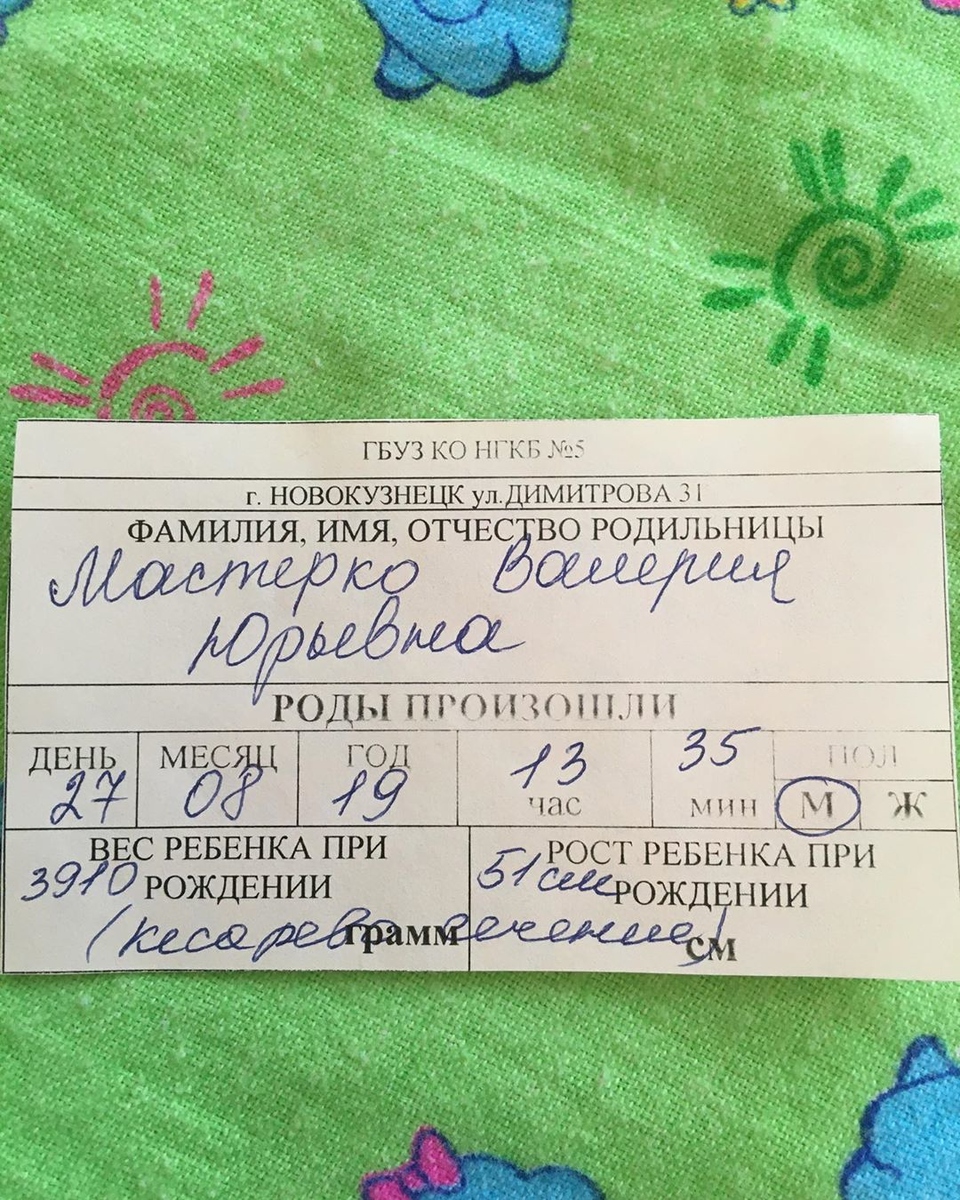 ГБУЗ КО НГКБ №5
г. НОВОКУЗНЕЦК ул.ДИМИТРОВА 31
ФАМИЛИЯ, ИМЯ, ОТЧЕСТВО РОДИЛЬНИЦЫ
Мастерко Валерия
Юрьевна
РОДЫ ПРОИЗОШЛИ
ДЕНЬ МЕСЯЦ ГОД 13 35 ПОЛ
27 08 19 час мин М Ж
ВЕС РЕБЕНКА ПРИ РОСТ РЕБЕНКА ПРИ
3910 РОЖДЕНИИ 51 см РОЖДЕНИИ
(кесарево сечение)
грамм см